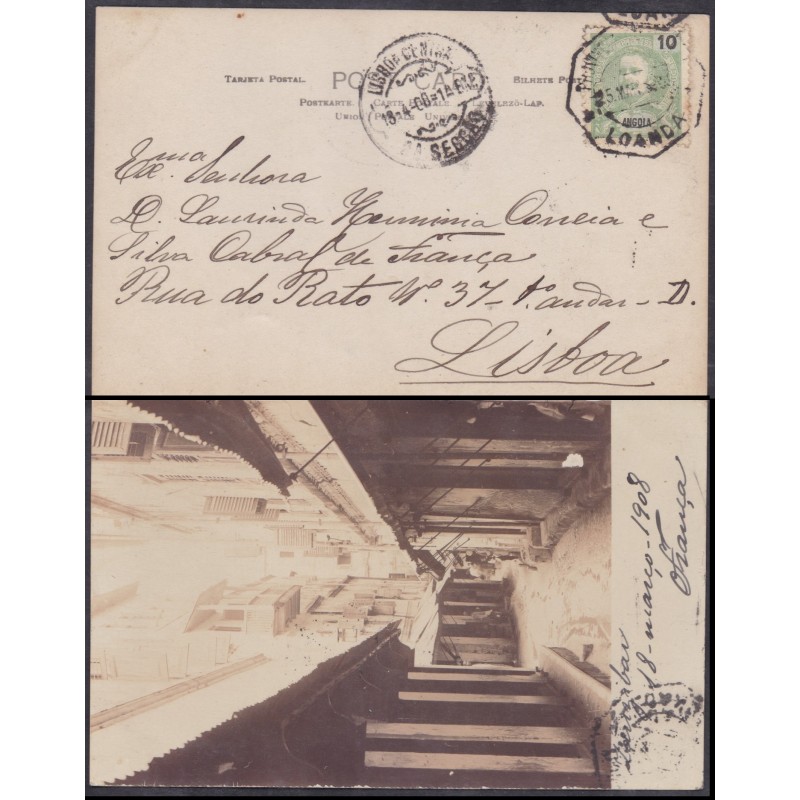 TARJETA POSTAL. POST CARD BILHETE POSTAL
POSTKARTE. CARTE POSTALE LEVELEZŐ-LAP.
UNION POSTALE UNIVERSELLE
LISBOA CENTRAL
18-4-08-1A
2A SECÇÃO
10
ANGOLA
LOANDA
Exma. Senhora
D. Laurinda Herminia Correia e
Silva Cabral de França
Rua do Rato Nº 37-1º andar-D.
Lisboa
18-março-1908
França